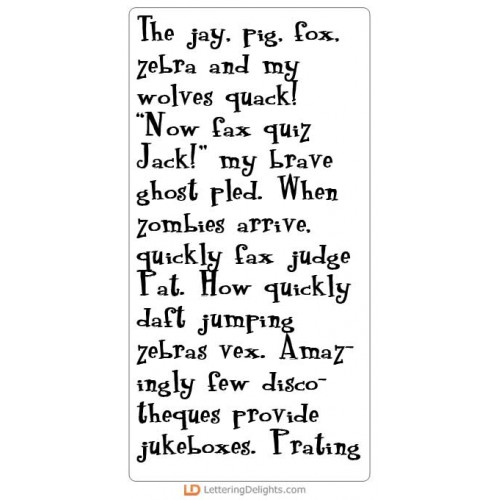 The jay, pig, fox,
zebra and my
wolves quack!
"Now fax quiz
Jack!" my brave
ghost pled. When
zombies arrive,
quickly fax judge
Pat. How quickly
daft jumping
zebras vex. Amaz-
ingly few disco-
theques provide
jukeboxes. Prating
LD LetteringDelights.com